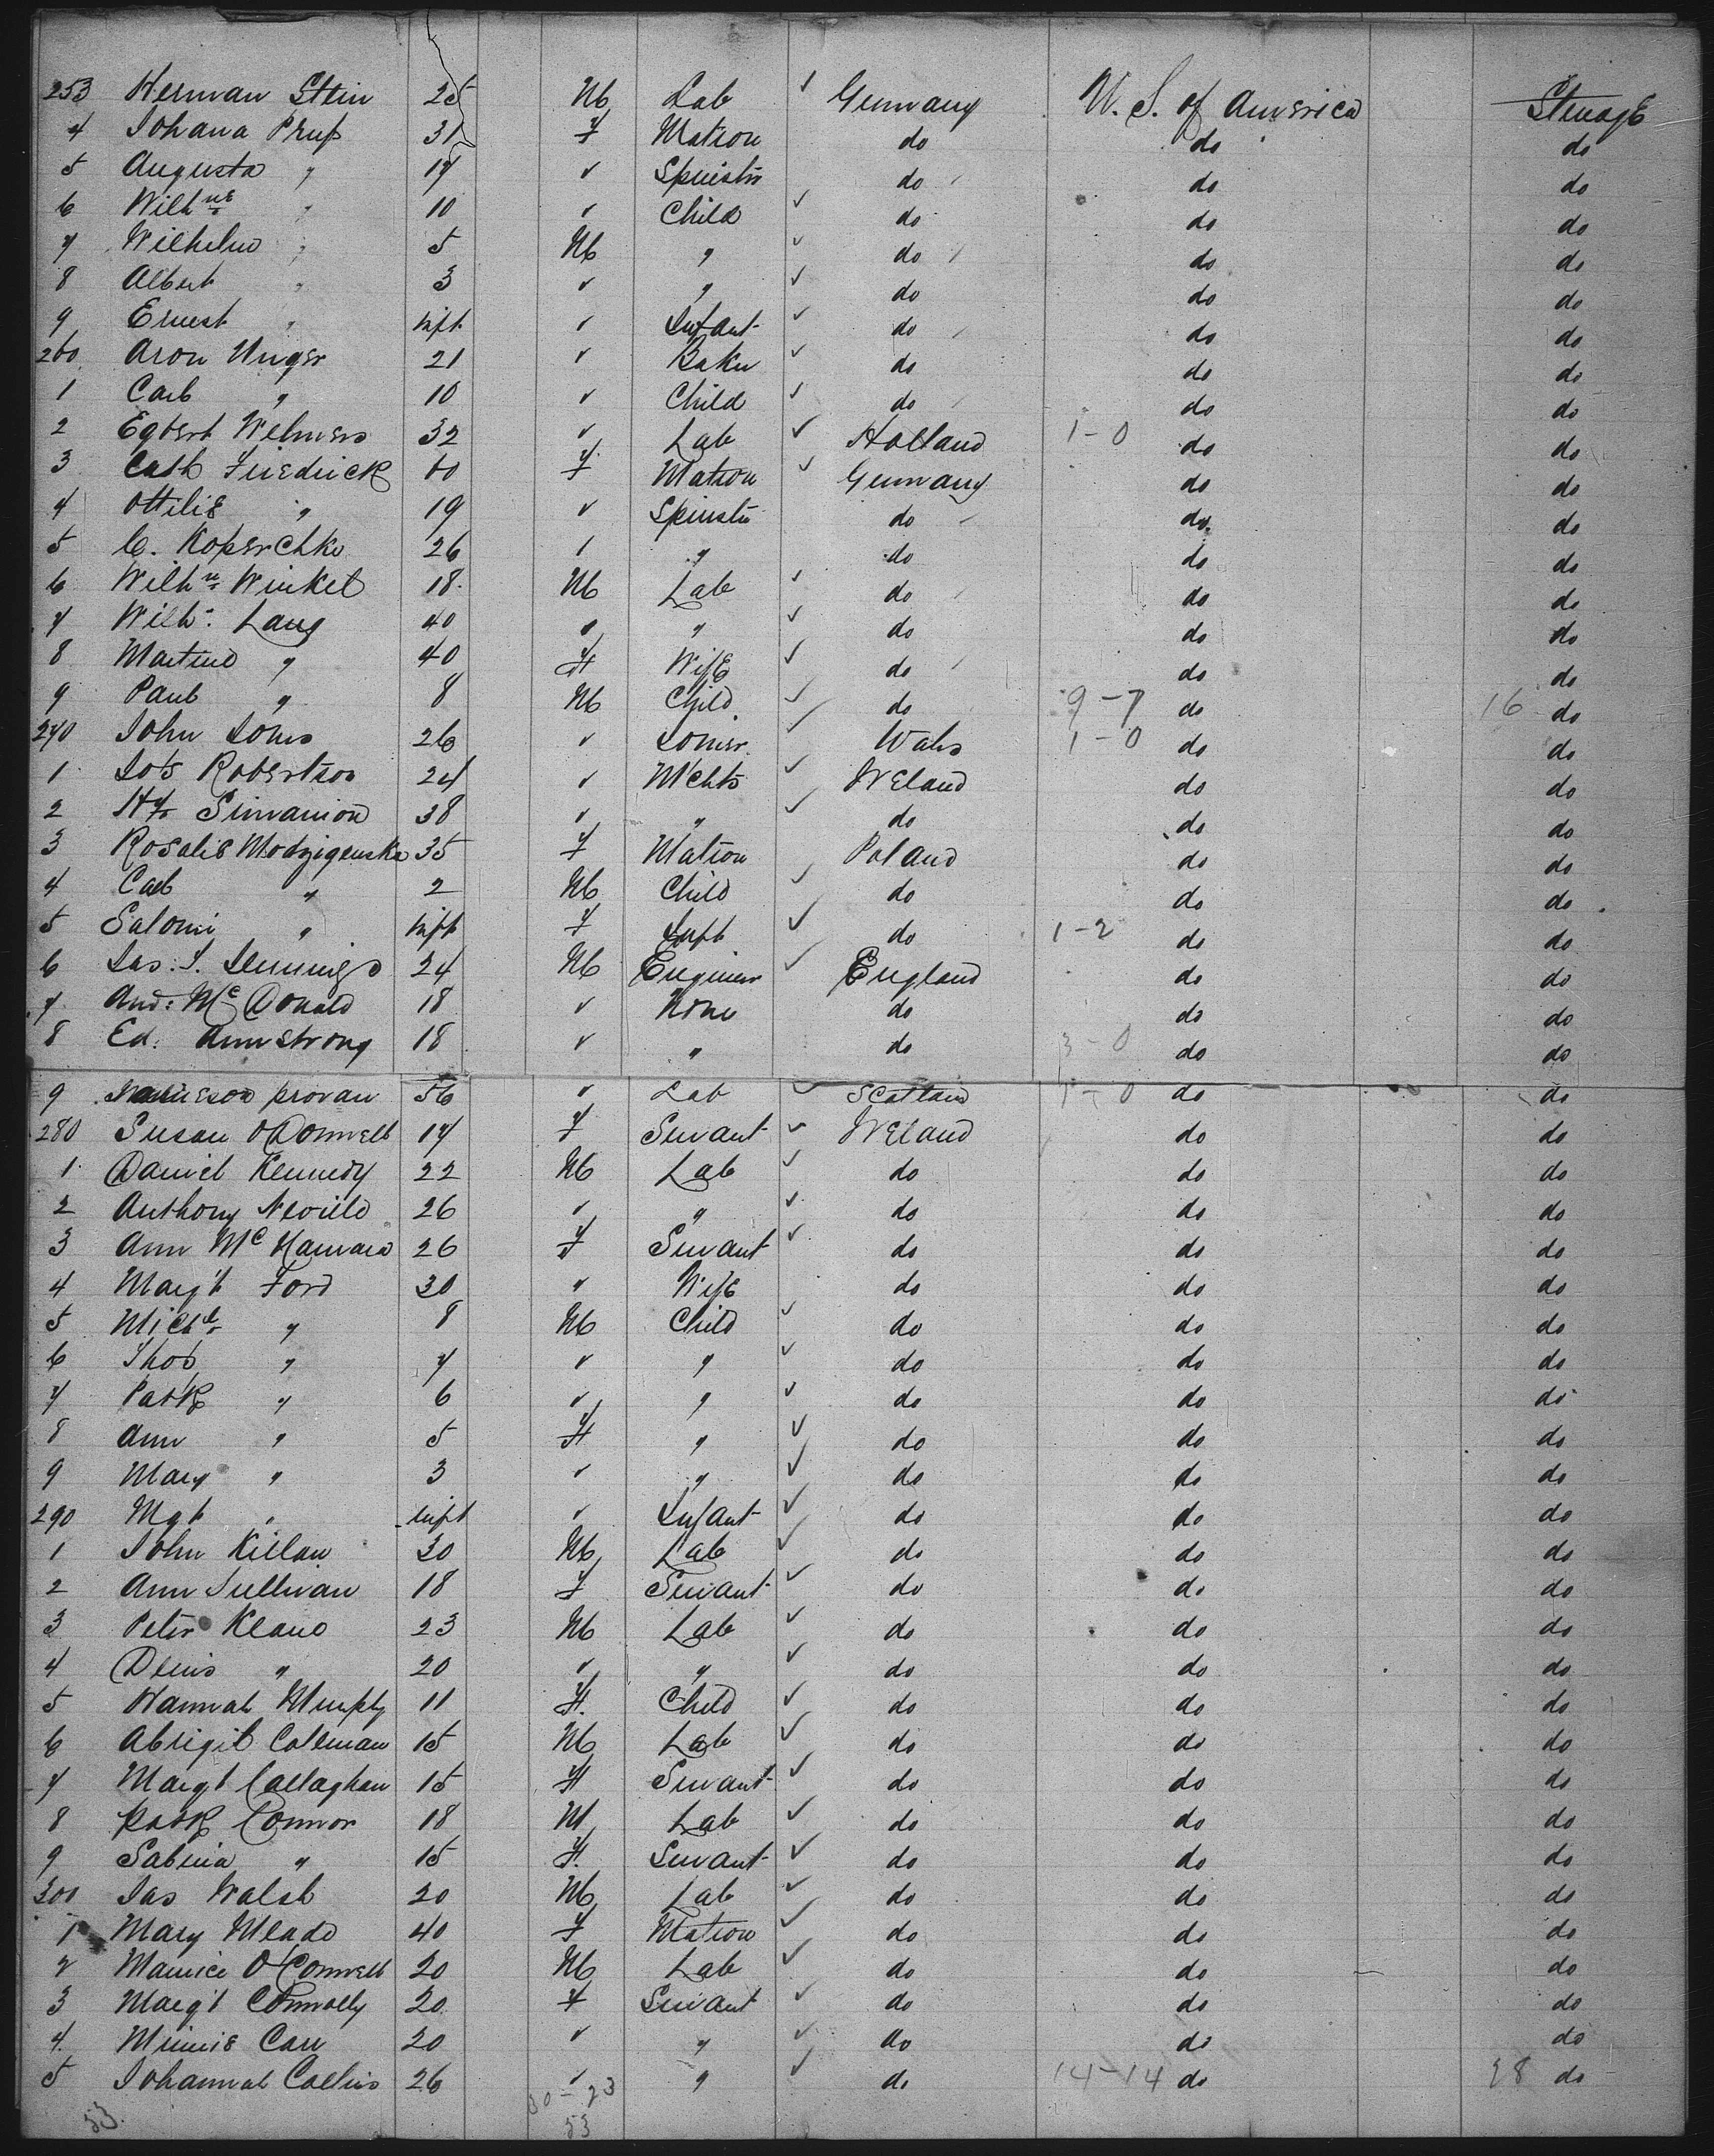 253 Herman Stein 25 M Lab Germany U. S. of America Steerage
4 Johana Prup 31 F Matron do do do
5 Augusta " 17 " Spinster do do do
6 Wilhne " 10 " Child do do do
7 Wilhelm " 5 M " do do do
8 Albert " 3 " " do do do
9 Ernest " inft " Infant do do do
260 Aron Unger 21 " Baker do do do
1 Carl " 10 " Child do do do
2 Egbert Welmers 32 " Lab Holland 1-0 do do
3 Cath Friedrick 60 F Matron Germany do do
4 Ottilie " 19 " Spinster do do do
5 C. Koperchke 26 " " do do do
6 Wilhm Winkel 18 M Lab do do do
7 Wilh: Lang 40 " " do do do
8 Martino " 40 F Wife do do do
9 Paul " 8 M Child do 9-7 do 16 do
270 John Jones 26 " Joiner Wales 1-0 do do
1 Jos Robertson 24 " Mchts Ireland do do
2 Hy 38 " " do do do
3 Rosalie 35 F Matron Poland do do
4 Carl " 2 M Child do do do
5 Salomi " inft F Inft do 1-2 do do
6 Jas. J. Jennings 24 M Engineer England do do
7 And: McDonald 18 " None do do do
8 Ed. Armstrong 18 " " do 3-0 do do
9 Jamieson provan 56 " Lab Scotland 1-0 do do
280 Susan ODonnell 17 F Servant Ireland do do
1 Daniel Kennedy 22 M Lab do do do
2 Anthony Nevill 26 " " do do do
3 Ann McNamara 26 F Servant do do do
4 Margt Ford 30 " Wife do do do
5 Michl " 8 M Child do do do
6 Thos " 7 " " do do do
7 Patk " 6 " " do do do
8 Ann " 5 F " do do do
9 Mary " 3 " " do do do
290 Mgt " inft " Infant do do do
1 John Killan 30 M Lab do do do
2 Ann Sullivan 18 F Servant do do do
3 Peter Keane 23 M Lab do do do
4 Denis " 20 " " do do do
5 Hannah Murphy 11 F. Child do do do
6 Abrigil Coleman 15 M Lab do do do
7 Margt Callaghan 15 F Servant do do do
8 Patk Connor 18 M Lab do do do
9 Sabina " 15 F. Servant do do do
300 Jas Walsh 20 M Lab do do do
1 Mary Meade 40 F Matron do do do
2 Maurice O'Connell 20 M Lab do do do
3 Margt Connolly 20 F Servant do do do
4. Minnie Carr 20 " " do do do
5 Johannah Collins 26 " " do 14-14 do 28 do
53. 30-23
53